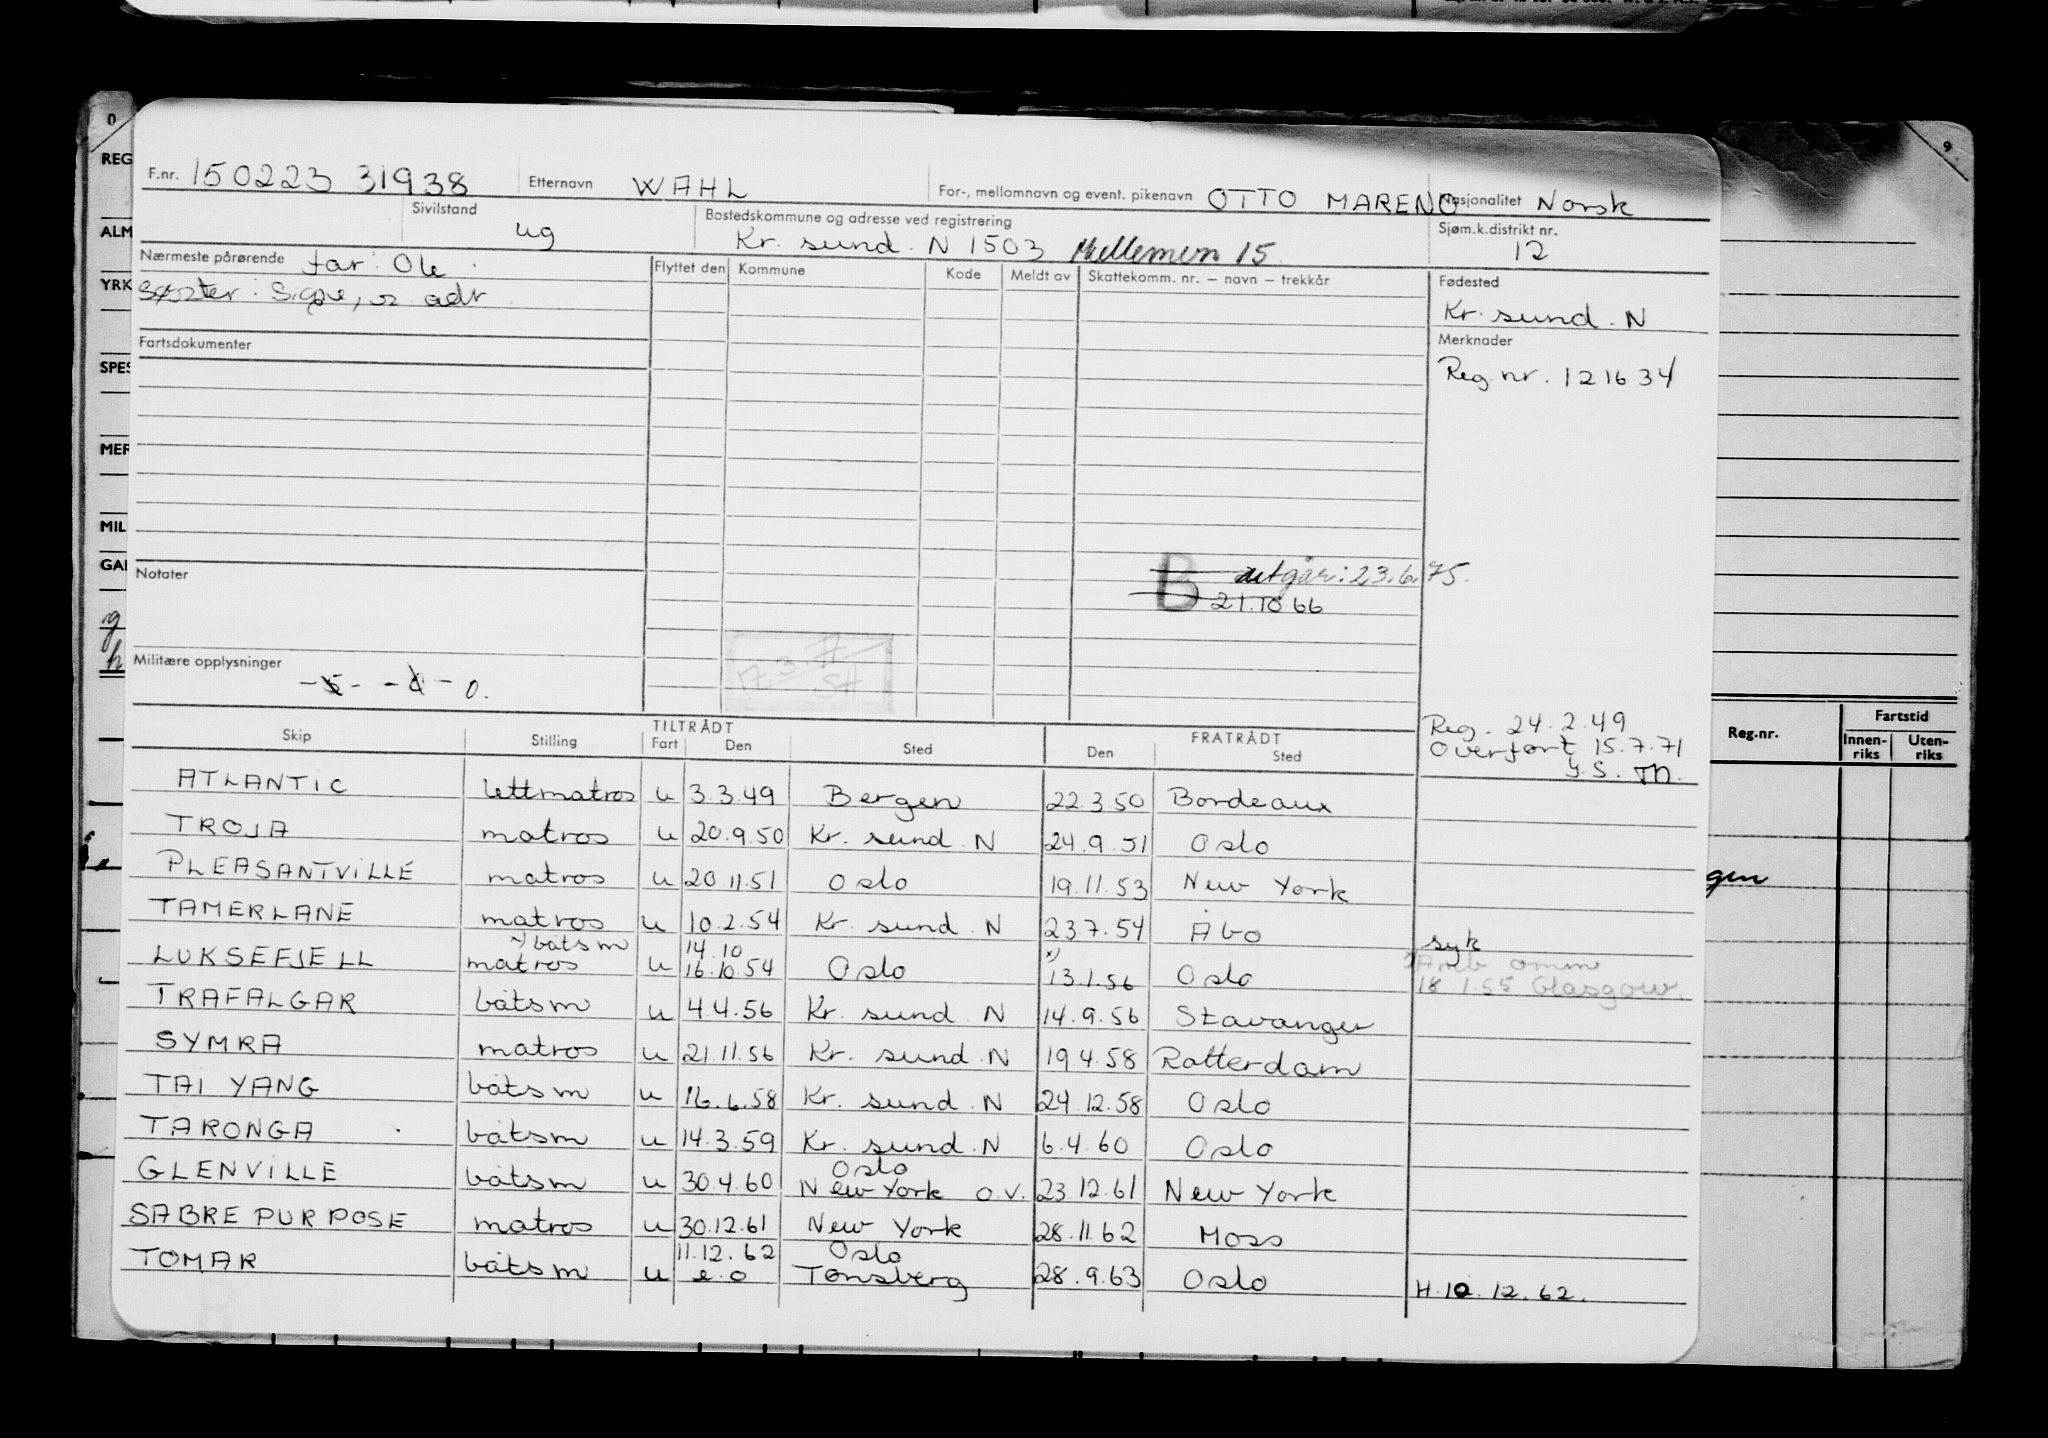 F.nr. 150223 31938 Etternavn WAHL For-, mellomnavn og event. pikenavn OTTO MARENO Nasjonalitet Norsk
Sivilstand ug Bostedskommune og adresse ved registrering Kr. sund. N 1503 Mellemvn 15 Sjøm.k.distrikt nr. 12
Nærmeste pårørende far: Ole Flyttet den Kommune Kode Meldt av Skattekomm. nr. — navn — trekkår Fødested
Søster: Signe, s. adr Kr. sund. N
Fartsdokumenter Merknader
Reg. nr. 121634
Notater B utgår: 23.6.75.
21.10 66
17.3.77
SH
Militære opplysninger - 5 - - 0.
Reg. 24.2.49
Overført 15.7.71
TILTRÅDT FRATRÅDT
Skip Stilling Fart Den Sted Den Sted
ATLANTIC lettmatros u 3.3.49 Bergen 22.3.50 Bordeaux
TROJA matros u 20.9.50 Kr. sund. N 24.9.51 Oslo
PLEASANTVILLE matros u 20.11.51 Oslo 19.11.53 New York
TAMERLANE matros u 10.2.54 Kr. sund. N 23.7.54 Åbo syk
x) båtsm 14.10 x)
LUKSEFJELL matros u 16.10.54 Oslo 13.1.56 Oslo omm 18 1.55 Glasgow.
TRAFALGAR båtsm u 4.4.56 Kr. sund. N 14.9.56 Stavanger
SYMRA matros u 21.11.56 Kr. sund. N 19.4.58 Rotterdam
TAI YANG båtsm u 16.6.58 Kr. sund. N 24.12.58 Oslo
TARONGA båtsm u 14.3.59 Kr. sund. N 6.4.60 Oslo
Oslo
GLENVILLE båtsm u 30.4.60 New York o.v. 23.12.61 New York
SABRE PURPOSE matros u 30.12.61 New York 28.11.62 Moss
11.12.62 Oslo
TOMAR båtsm u e.o Tønsberg 28.9.63 Oslo H. 10.12.62.
REG
ALM
YRK
SPES
MER
MIL
GAI
0
9
Reg.nr.
Fartstid
Innen-riks
Uten-riks
gen